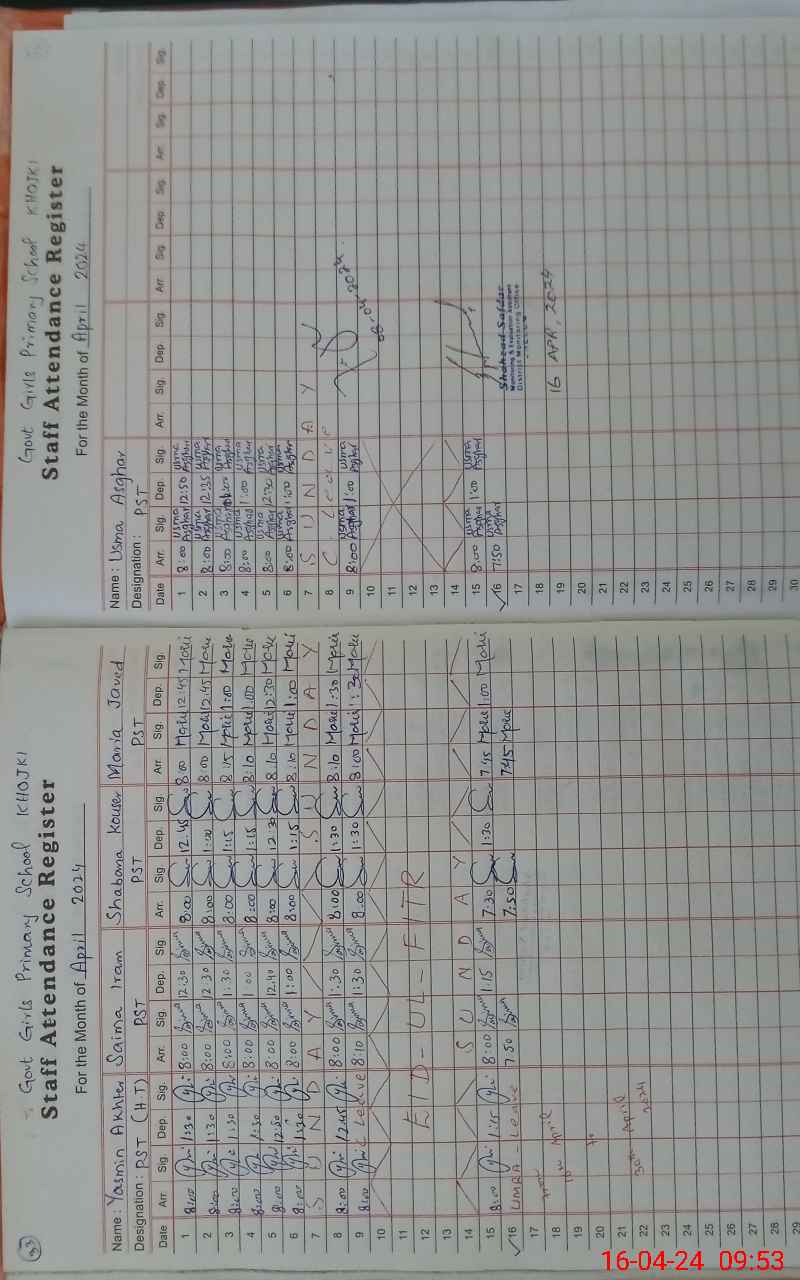 33
Govt Girls Primary School KHOJKI
Staff Attendance Register
For the Month of April 2024
Name : Yasmin Akhter Saima Iram Shabana Kouser Maria Javed
Designation : PST (H.T) PST PST PST
Date Arr. Sig. Dep. Sig. Arr. Sig. Dep. Sig. Arr. Sig. Dep. Sig. Arr. Sig. Dep. Sig.
1 8:00 1:30 8:00 12.30 8:00 12.45 8:00 12:45
2 8:00 1:30 8:00 12.30 8:00 1:00 8:00 12:45
3 8:00 1:30 8:00 1:30 8:00 1:15 8:15 1:00
4 8:00 1:30 8:00 1:00 8:00 1:15 8:10 1:00
5 8:00 12:30 8:00 12.40 8:00 12:30 8:10 12:30
6 8:00 1:30 8:00 1:00 8:00 1:15 8:10 1:00
7 S U N D A Y S U N D A Y
8 8:00 12:45 8:00 1:30 8:00 1:30 8:10 1:30
9 8:00 C Leave 8:10 1:30 8:00 1:30 8:00 1:30
10
11
12 EID-UL-FITR
13
14 S U N D A Y
15 8:00 1:15 8:00 1:15 7:30 1:30 7:45 1:00
16 UMRA - Leave 7:50 7:50 7:45
17
18 April
19
20 to
21 30th April
22 2024
23
24
25
26
27
28
29
Govt Girls Primary School KHOJKI
Staff Attendance Register
For the Month of April 2024
Name : Usma Asghar
Designation : PST
Date Arr. Sig. Dep. Sig. Arr. Sig. Dep. Sig. Arr. Sig. Dep. Sig. Arr. Sig. Dep. Sig.
1 8:00 Usma Asghar 12:50 Usma Asghar
2 8:00 Usma Asghar 12:25 Usma Asghar
3 8:00 Usma Asghar 1:00 Usma Asghar
4 8:00 Usma Asghar 1:00 Usma Asghar
5 8:00 Usma Asghar 12:30 Usma Asghar
6 8:00 Usma Asghar 1:00 Usma Asghar
7 S U N D A Y
8 C. Leave
9 8:00 Usma Asghar 1:00 Usma Asghar
08-04-2024
10
11
12
13
14
15 8:00 Usma Asghar 1:00 Usma Asghar
16 7:50 Usma Asghar
Shahzad Safdar
Monitoring & Evaluation Assistant
District Monitoring Office
17
18
16 APR, 2024
19
20
21
22
23
24
25
26
27
28
29
30
16-04-24 09:53